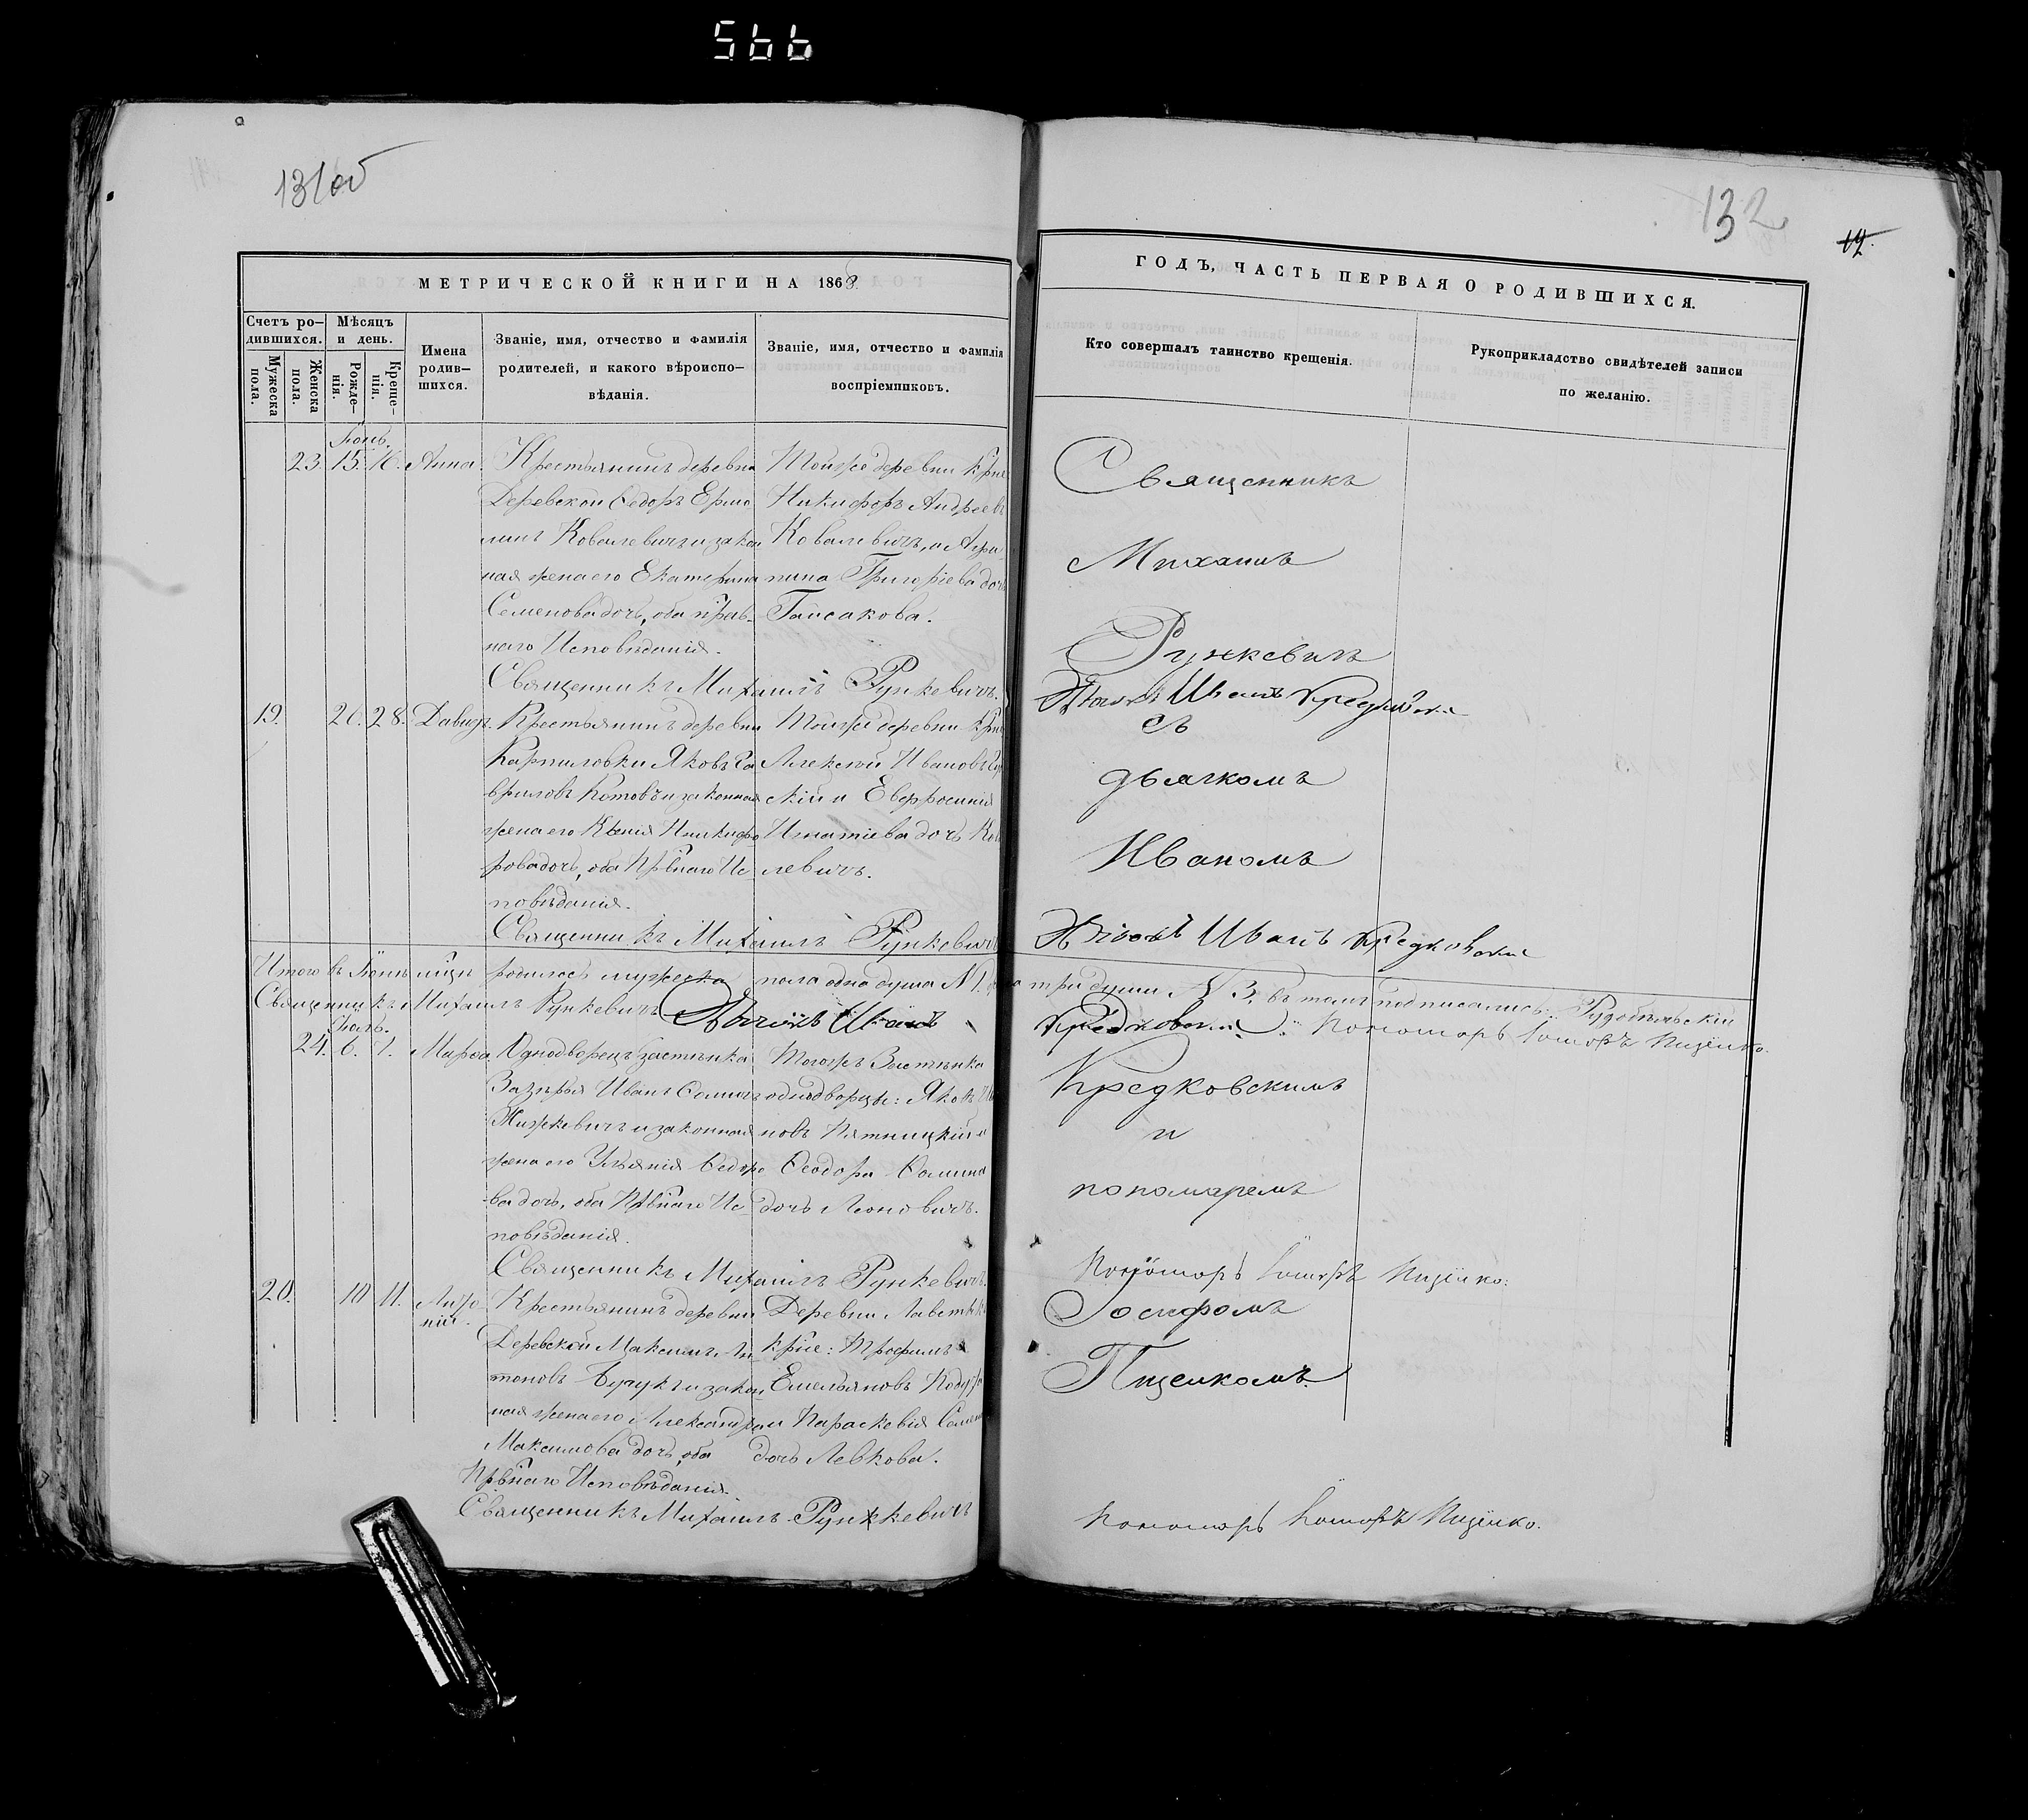 566
131об
132
17.
МЕТРИЧЕСКОЙ КНИГИ НА 1868.
ГОДЪ, ЧАСТЬ ПЕРВАЯ О РОДИВШИХСЯ.
Счетъ ро-
дившихся.
Мужеска
пола.
Женска
пола.
Мѣсяцъ
и день.
Рожде-
нія.
Креще-
нія.
Имена
родив-
шихся.
Званіе, имя, отчество и фамилія
родителей, и какого вѣроиспо-
вѣданія.
Званіе, имя, отчество и фамилія
воспріемниковъ.
Кто совершалъ таинство крещенія.
Рукоприкладство свидѣтелей записи
по желанію.
Іюнь.
23. 15. 16. Анна.
Крестьянинъ деревни
Деревской Ѳедоръ Ермо
линъ Ковалевичъ и закон
ная жена его Екатерина
Семенова дочь, оба прав-
наго Исповѣданія.
Священникъ Михаилъ Рункевичъ.
Тойже деревни крне
Никифоръ Андреевъ
Ковалевичъ, и Агри
пина Григоріева дочь
Гайсакова.
Священникъ
Михаилъ
Рункевичъ
Дьячекъ Иванъ Кредковскі
съ
дьячкомъ
Иваномъ
19. 26. 28. Давидъ.
Крестьянинъ деревни
Карпиловки Яковъ Га
вриловъ Котовъ и законная
жена его Ксенія Никифо
рова дочь, оба Првнаго Ис
повѣданія.
Священникъ Михаилъ Рункевичъ
Тойже деревни крне
Алексѣй Ивановъ
скій и Евфросинія
Игнатіева дочь Ков
левичъ.
Дьячекъ Иванъ Кредковскі
Итого въ Іюнѣ мцѣ родилось мужеска пола одна душа №1. три души №3, въ томъ подписались: Рудобѣльскій
Священникъ Михаилъ Рункевичъ Дьячекъ Иванъ Кредковскі. Пономарь Іосифъ Пиценко.
Іюль.
24. 6. 7. Марѳа
Однодворецъ застѣнка
Зазѣрья Иванъ
Жижкевичъ и законная
жена его Ульянія Ѳедоро
ва дочь, оба Првнаго Ис
повѣданія.
Священникъ Михаилъ Рункевичъ.
Тогоже Застѣнка
однодворцы: Яковъ Ив
новъ Пятницкій и
Ѳеодора Ѳомина
дочь Леоновичъ.
Кредковскимъ
и
пономаремъ
Пономарь Іосифъ Пиценко.
Іосифомъ
Пиценкомъ.
20. 10. 11. Анто
ній.
Крестьянинъ деревни
Деревской Максимъ Ан
тоновъ и закон
ная жена его Александра
Максимова дочь, оба
Прнаго Исповѣданія.
Священникъ Михаилъ Рункевичъ
Деревни Лавстыки
крне: Трофимъ
Емельяновъ
и Параскевія Семен
дочь Левкова.
Пономарь Іосифъ Пиценко.